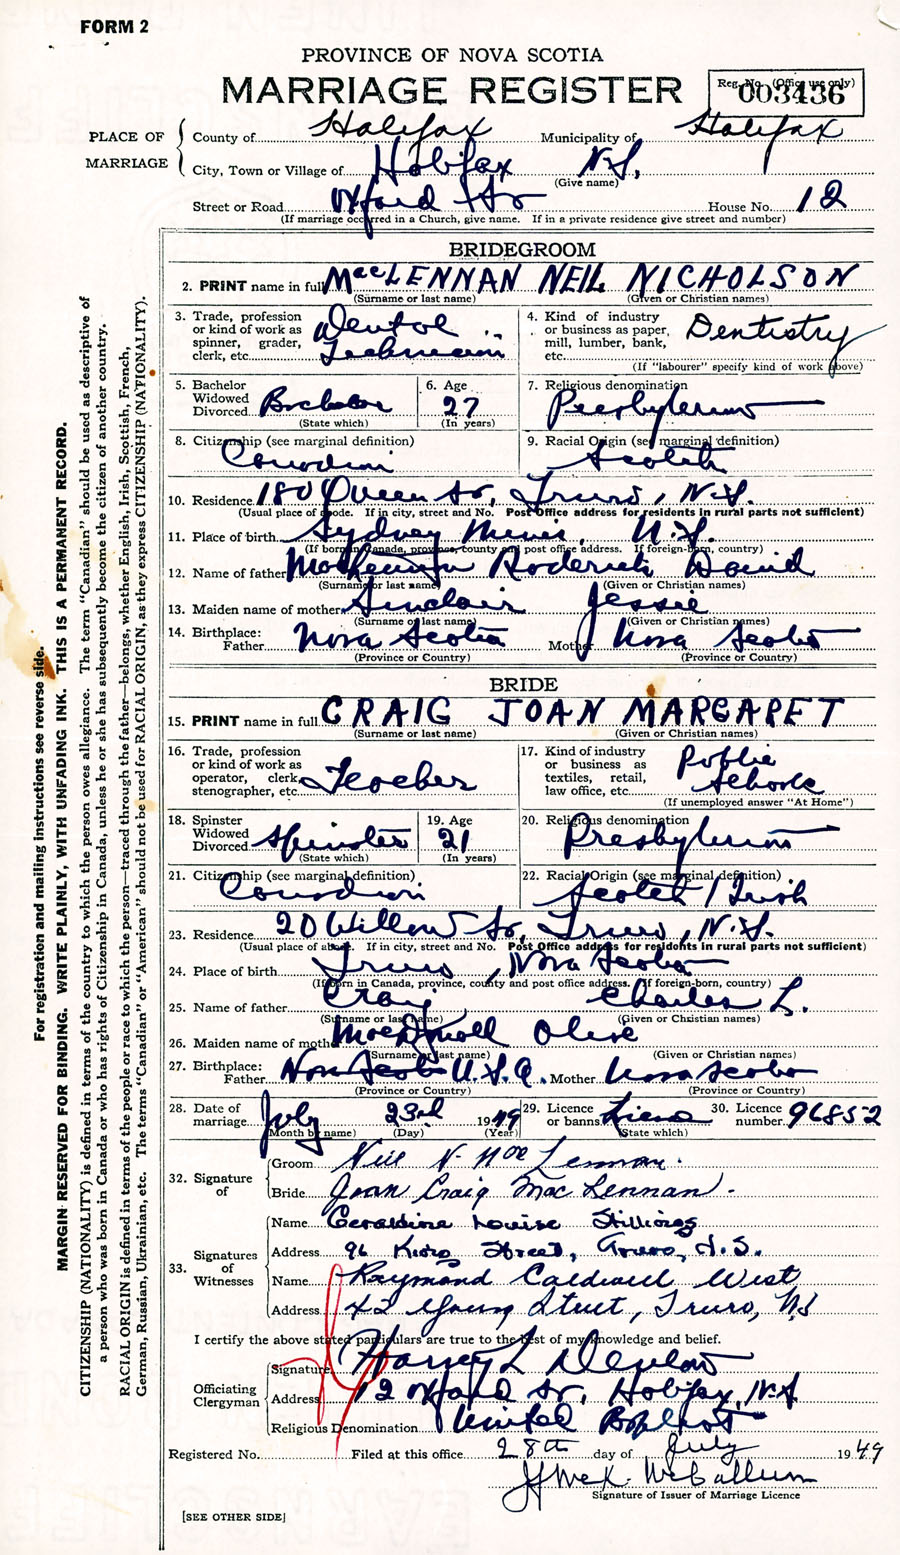 FORM 2
PROVINCE OF NOVA SCOTIA
MARRIAGE REGISTER
Reg. No. (Office use only)
003436
PLACE OF MARRIAGE
County of Halifax Municipality of Halifax
City, Town or Village of Halifax N.S.
(Give name)
Street or Road Oxford St. House No. 12
(If marriage occurred in a Church, give name. If in a private residence give street and number)
BRIDEGROOM
2. PRINT name in full MacLENNAN NEIL NICHOLSON
(Surname or last name) (Given or Christian names)
3. Trade, profession or kind of work as spinner, grader, clerk, etc. Dental Technician
4. Kind of industry or business as paper, mill, lumber, bank, etc. Dentistry
(If "labourer" specify kind of work above)
5. Bachelor Widowed Divorced Bachelor
(State which)
6. Age 27
(In years)
7. Religious denomination Presbyterian
8. Citizenship (see marginal definition)
Canadian
9. Racial Origin (see marginal definition)
Scotch
10. Residence 180 Queen St., Truro, N.S.
(Usual place of abode. If in city, street and No. Post Office address for residents in rural parts not sufficient)
11. Place of birth Sydney Mines, N.S.
(If born in Canada, province, county and post office address. If foreign-born, country)
12. Name of father MacLennan Roderick David
(Surname or last name) (Given or Christian names)
13. Maiden name of mother Sinclair Jessie
(Surname or last name) (Given or Christian names)
14. Birthplace: Father Nova Scotia Mother Nova Scotia
(Province or Country) (Province or Country)
BRIDE
15. PRINT name in full CRAIG JOAN MARGARET
(Surname or last name) (Given or Christian names)
16. Trade, profession or kind of work as operator, clerk, stenographer, etc. Teacher
17. Kind of industry or business as textiles, retail, law office, etc. Public Schools
(If unemployed answer "At Home")
18. Spinster Widowed Divorced Spinster
(State which)
19. Age 21
(In years)
20. Religious denomination Presbyterian
21. Citizenship (see marginal definition)
Canadian
22. Racial Origin (see marginal definition)
Scotch / Irish
23. Residence 20 Willow St., Truro, N.S.
(Usual place of abode. If in city, street and No. Post Office address for residents in rural parts not sufficient)
24. Place of birth Truro, Nova Scotia
(If born in Canada, province, county and post office address. If foreign-born, country)
25. Name of father Craig Charles L.
(Surname or last name) (Given or Christian names)
26. Maiden name of mother Olive
(Surname or last name) (Given or Christian names)
27. Birthplace: Father Nova Scotia U.S.A. Mother Nova Scotia
(Province or Country) (Province or Country)
28. Date of marriage July 23rd 1949
(Month by name) (Day) (Year)
29. Licence or banns
(State which)
30. Licence number 96852
32. Signature of
Groom Neil N. MacLennan.
Bride Joan Craig MacLennan.
33. Signatures of Witnesses
Name Geraldine Louise
Address 96 King Street, Truro, N.S.
Name Raymond Caldwell West
Address 42 Young Street, Truro, N.S
I certify the above stated particulars are true to the best of my knowledge and belief.
Officiating Clergyman
Signature Harvey L
Address 12 Oxford St., Halifax, N.S
Religious Denomination United Baptist
Registered No. Filed at this office 28th day of July 1949
McCallum
Signature of Issuer of Marriage Licence
[SEE OTHER SIDE]
For registration and mailing instructions see reverse side.
MARGIN RESERVED FOR BINDING. WRITE PLAINLY, WITH UNFADING INK. THIS IS A PERMANENT RECORD.
CITIZENSHIP (NATIONALITY) is defined in terms of the country to which the person owes allegiance. The term "Canadian" should be used as descriptive of
a person who was born in Canada or who has rights of Citizenship in Canada, unless he or she has subsequently become the citizen of another country.
RACIAL ORIGIN is defined in terms of the people or race to which the person—traced through the father—belongs, whether English, Irish, Scottish, French,
German, Russian, Ukrainian, etc. The terms "Canadian" or "American" should not be used for RACIAL ORIGIN, as they express CITIZENSHIP (NATIONALITY).